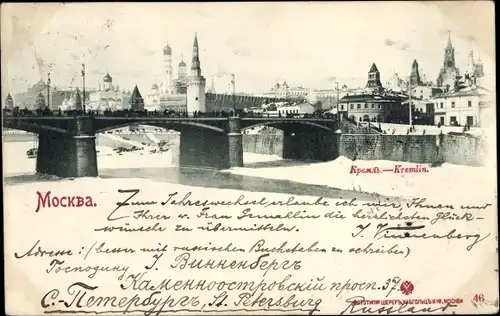 Москва.
Кремль.—Kremlin.
Zum Jahreswechsel erlaube ich mir, Ihnen und
Ihrer w. Frau Gemahlin die herzlichsten Glück-
wünsche zu übermitteln.
J. Winnenberg
Adresse: (besser mit russischen Buchstaben zu schreiben)
Господину I. Винненбергъ
Каменноостровскій просп. 37.
С.-Петербургъ, St. Petersburg
Russland.
ФОТОТИПІЯ ШЕРЕРЪ, НАБГОЛЬЦЪ И Ко, МОСКВА
46